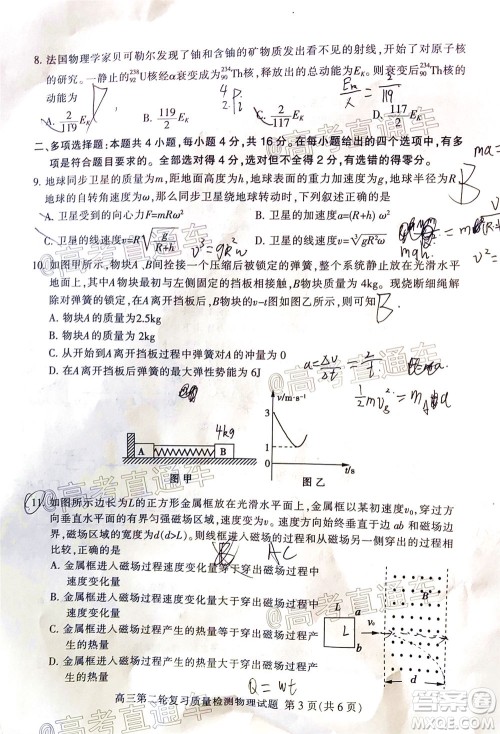 8. 法国物理学家贝可勒尔发现了铀和含铀的矿物质发出看不见的射线，开始了对原子核
的研究。一静止的²³⁸₉₂U核经α衰变成为²³⁴₉₀Th核，释放出的总动能为Eₖ，则衰变后²³⁴₉₀Th核的
动能为
A. 2/119 Eₖ B. 119/2 Eₖ C. 2/117 Eₖ D. 117/2 Eₖ
二、多项选择题：本题共4小题，每小题4分，共16分。在每小题给出的四个选项中，有
多项符合题目要求的。全部选对得4分，选对但不全得2分，有选错的得零分。
9. 地球同步卫星的质量为m，距地面高度为h，地球表面的重力加速度为g，地球半径为R，地
球的自转角速度为ω，那么同步卫星绕地球转动时，以下说法正确的是
A. 卫星受到的向心力F=mRω² B. 卫星的线速度v=(R+h)ω
C. 卫星的线速度v=R√(g/(R+h)) D. 卫星的线速度v=∛(gR²ω)
v³=gR²ω
10. 如图甲所示，物块A、B间拴接一个压缩后被锁定的弹簧，整个系统静止放在光滑水平
地面上，其中A物块最初与左侧固定的挡板相接触，B物块质量为4kg。现烧断细绳解
除对弹簧的锁定，在A离开挡板后，B物块的v-t图如图乙所示，则可知
A. 物块A的质量为2.5kg
B. 物块A的质量为2kg
C. 从开始到A离开挡板过程中弹簧对A的冲量为0
D. 在A离开挡板后弹簧的最大弹性势能为6J
v/m·s⁻¹
3
1
0
t/s
4kg
A B
图甲 图乙
11. 如图所示边长为L的正方形金属框放在光滑水平面上，金属框以某初速度v₀，穿过方
向垂直水平面的有界匀强磁场区域，速度方向垂直于边ab和磁场边界，磁场区域的
宽度为d(d>L)。则线框进入磁场过程和穿出磁场过程相比
AC
A. 金属框进入磁场过程速度变化量等于穿出磁场过程中
速度变化量
B. 金属框进入磁场过程速度变化量大于穿出磁场过程中
速度变化量
C. 金属框进入磁场过程产生的热量大于穿出磁场过程产
生的热量
D. 金属框进入磁场过程产生的热量等于穿出磁场过程产
生的热量
L
a
L
b
v₀
d
高三第二轮复习质量检测物理试题 第3页(共6页)
高考直通车